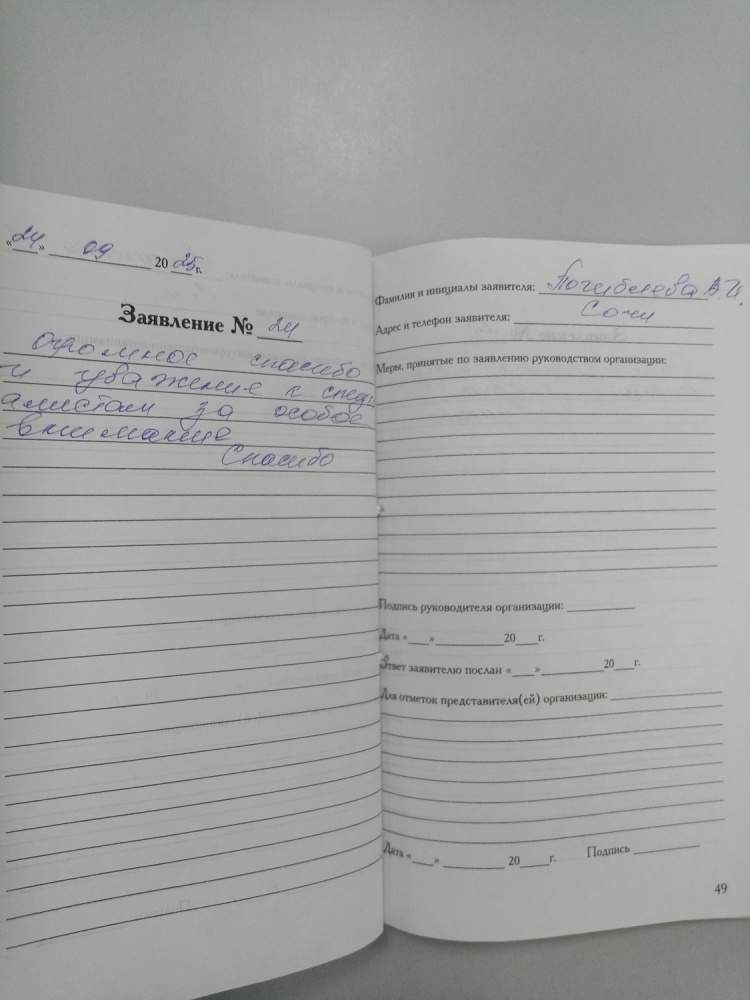 «24» 09 2025г.
Заявление № 24
огромное спасибо
и уважение к специ
алистам за особое
внимание
Спасибо
Фамилия и инициалы заявителя: В.И.
Адрес и телефон заявителя: Сочи
Меры, принятые по заявлению руководством организации:
Подпись руководителя организации:
Дата «___»__________20___г.
Ответ заявителю послан «___»__________20___г.
Для отметок представителя(ей) организации:
Дата «___» __________ 20____г. Подпись __________
49